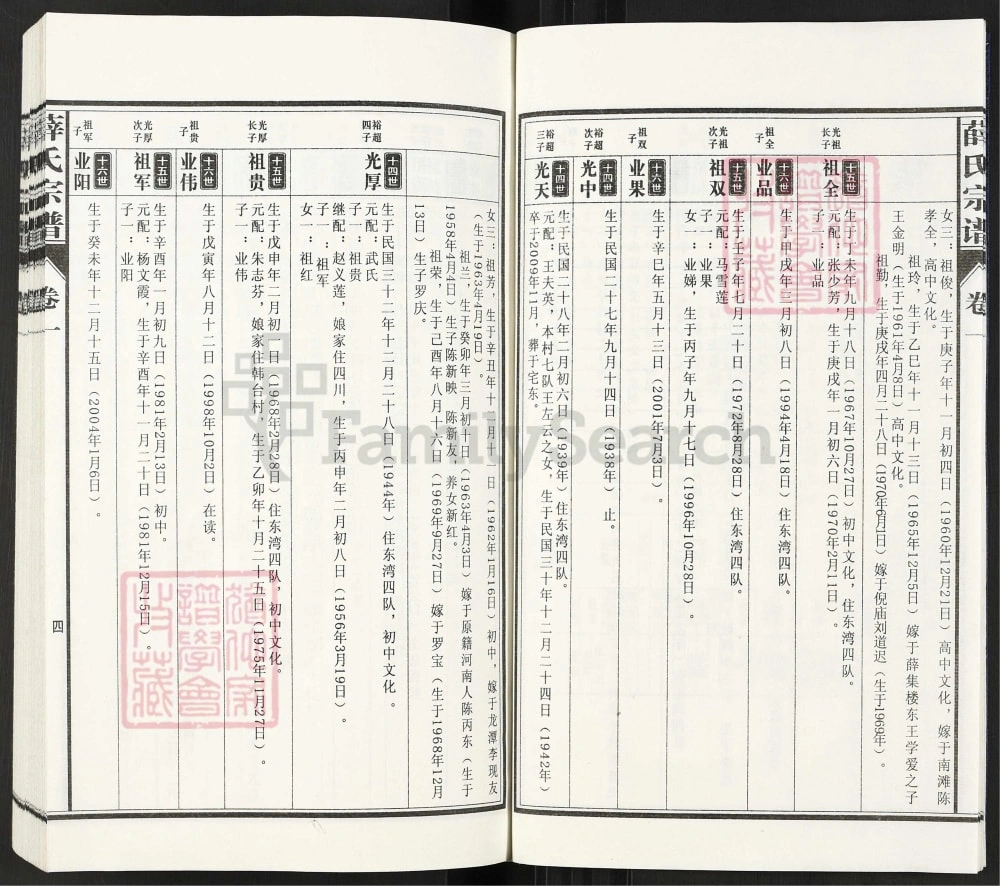 薛氏宗谱
卷一
女三：祖俊，生于庚子年十一月初四日（1960年12月21日）高中文化，嫁于南滩陈
孝全，高中文化。
祖玲，生于乙巳年十一月十三日（1965年12月5日）嫁于薛集楼东王学爱之子
王金明（生于1961年4月8日）高中文化。
祖勤，生于庚戌年四月二十八日（1970年6月2日）嫁于倪庙刘道迟（生于1969年）。
光祖长子
十五世
祖全
生于丁未年九月十八日（1967年10月27日）初中文化，住东湾四队。
元配：张少芳，生于庚戌年一月初六日（1970年2月11日）。
子一：业品
祖全子
十六世
业品
生于甲戌年三月初八日（1994年4月18日）住东湾四队。
光祖次子
十五世
祖双
生于壬子年七月二十日（1972年8月28日）住东湾四队。
元配：马雪莲
子一：业果
女一：业娣，生于丙子年九月十七日（1996年10月28日）。
祖双子
十六世
业果
生于辛巳年五月十三日（2001年7月3日）。
裕超次子
十四世
光中
生于民国二十七年九月十四日（1938年）止。
裕超三子
十四世
光天
生于民国二十八年二月初六日（1939年）住东湾四队。
元配：王夫英，本村七队王左云之女，生于民国三十年十二月二十四日（1942年）
卒于2009年11月，葬于宅东。
女三：祖芳，生于辛丑年十二月十一日（1962年1月16日）初中，嫁于龙潭李现友
（生于1963年4月19日）。
祖兰，生于癸卯年三月初十日（1963年4月3日）嫁于原籍河南人陈丙东（生于
1958年4月4日）生子陈新映 陈新友 养女新红。
祖荣，生于己酉年八月十六日（1969年9月27日）嫁于罗宝（生于1968年12月
13日）生子罗庆。
裕超四子
十四世
光厚
生于民国三十二年十二月二十八日（1944年）住东湾四队，初中文化。
元配：武氏
子一：祖贵
继配：赵义莲，娘家住四川，生于丙申年二月初八日（1956年3月19日）。
子一：祖军
女一：祖红
光厚长子
十五世
祖贵
生于戊申年二月初一日（1968年2月28日）住东湾四队，初中文化。
元配：朱志芬，娘家住韩台村，生于乙卯年十月二十五日（1975年11月27日）。
子一：业伟
祖贵子
十六世
业伟
生于戊寅年八月十二日（1998年10月2日）在读。
光厚次子
十五世
祖军
生于辛酉年一月初九日（1981年2月13日）初中。
元配：杨文霞，生于辛酉年十一月二十日（1981年12月15日）。
子一：业阳
祖军子
十六世
业阳
生于癸未年十二月十五日（2004年1月6日）。
薛氏宗谱
卷一
四
FamilySearch